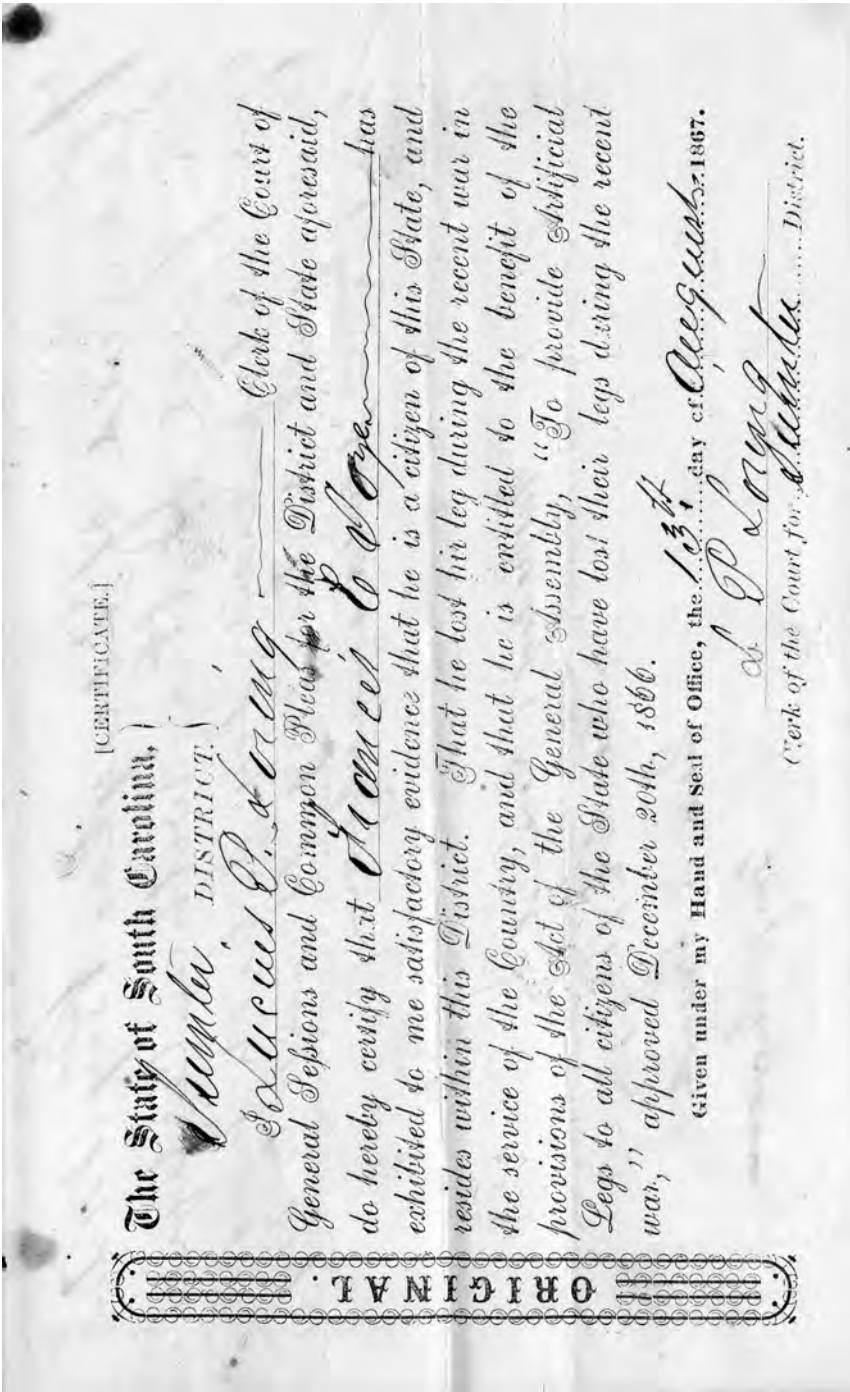 [CERTIFICATE.]
The State of South Carolina,
Sumter DISTRICT.
I Lucius P. Loring Clerk of the Court of
General Sessions and Common Pleas for the District and State aforesaid,
do hereby certify that Francis E has
exhibited to me satisfactory evidence that he is a citizen of this State, and
resides within this District. That he lost his leg during the recent war in
the service of the Country, and that he is entitled to the benefit of the
provisions of the Act of the General Assembly, "To provide Artificial
Legs to all citizens of the State who have lost their legs during the recent
war," approved December 20th, 1866.
Given under my Hand and Seal of Office, the 13th day of August 1867.
L P Loring
Clerk of the Court for Sumter District.
ORIGINAL.